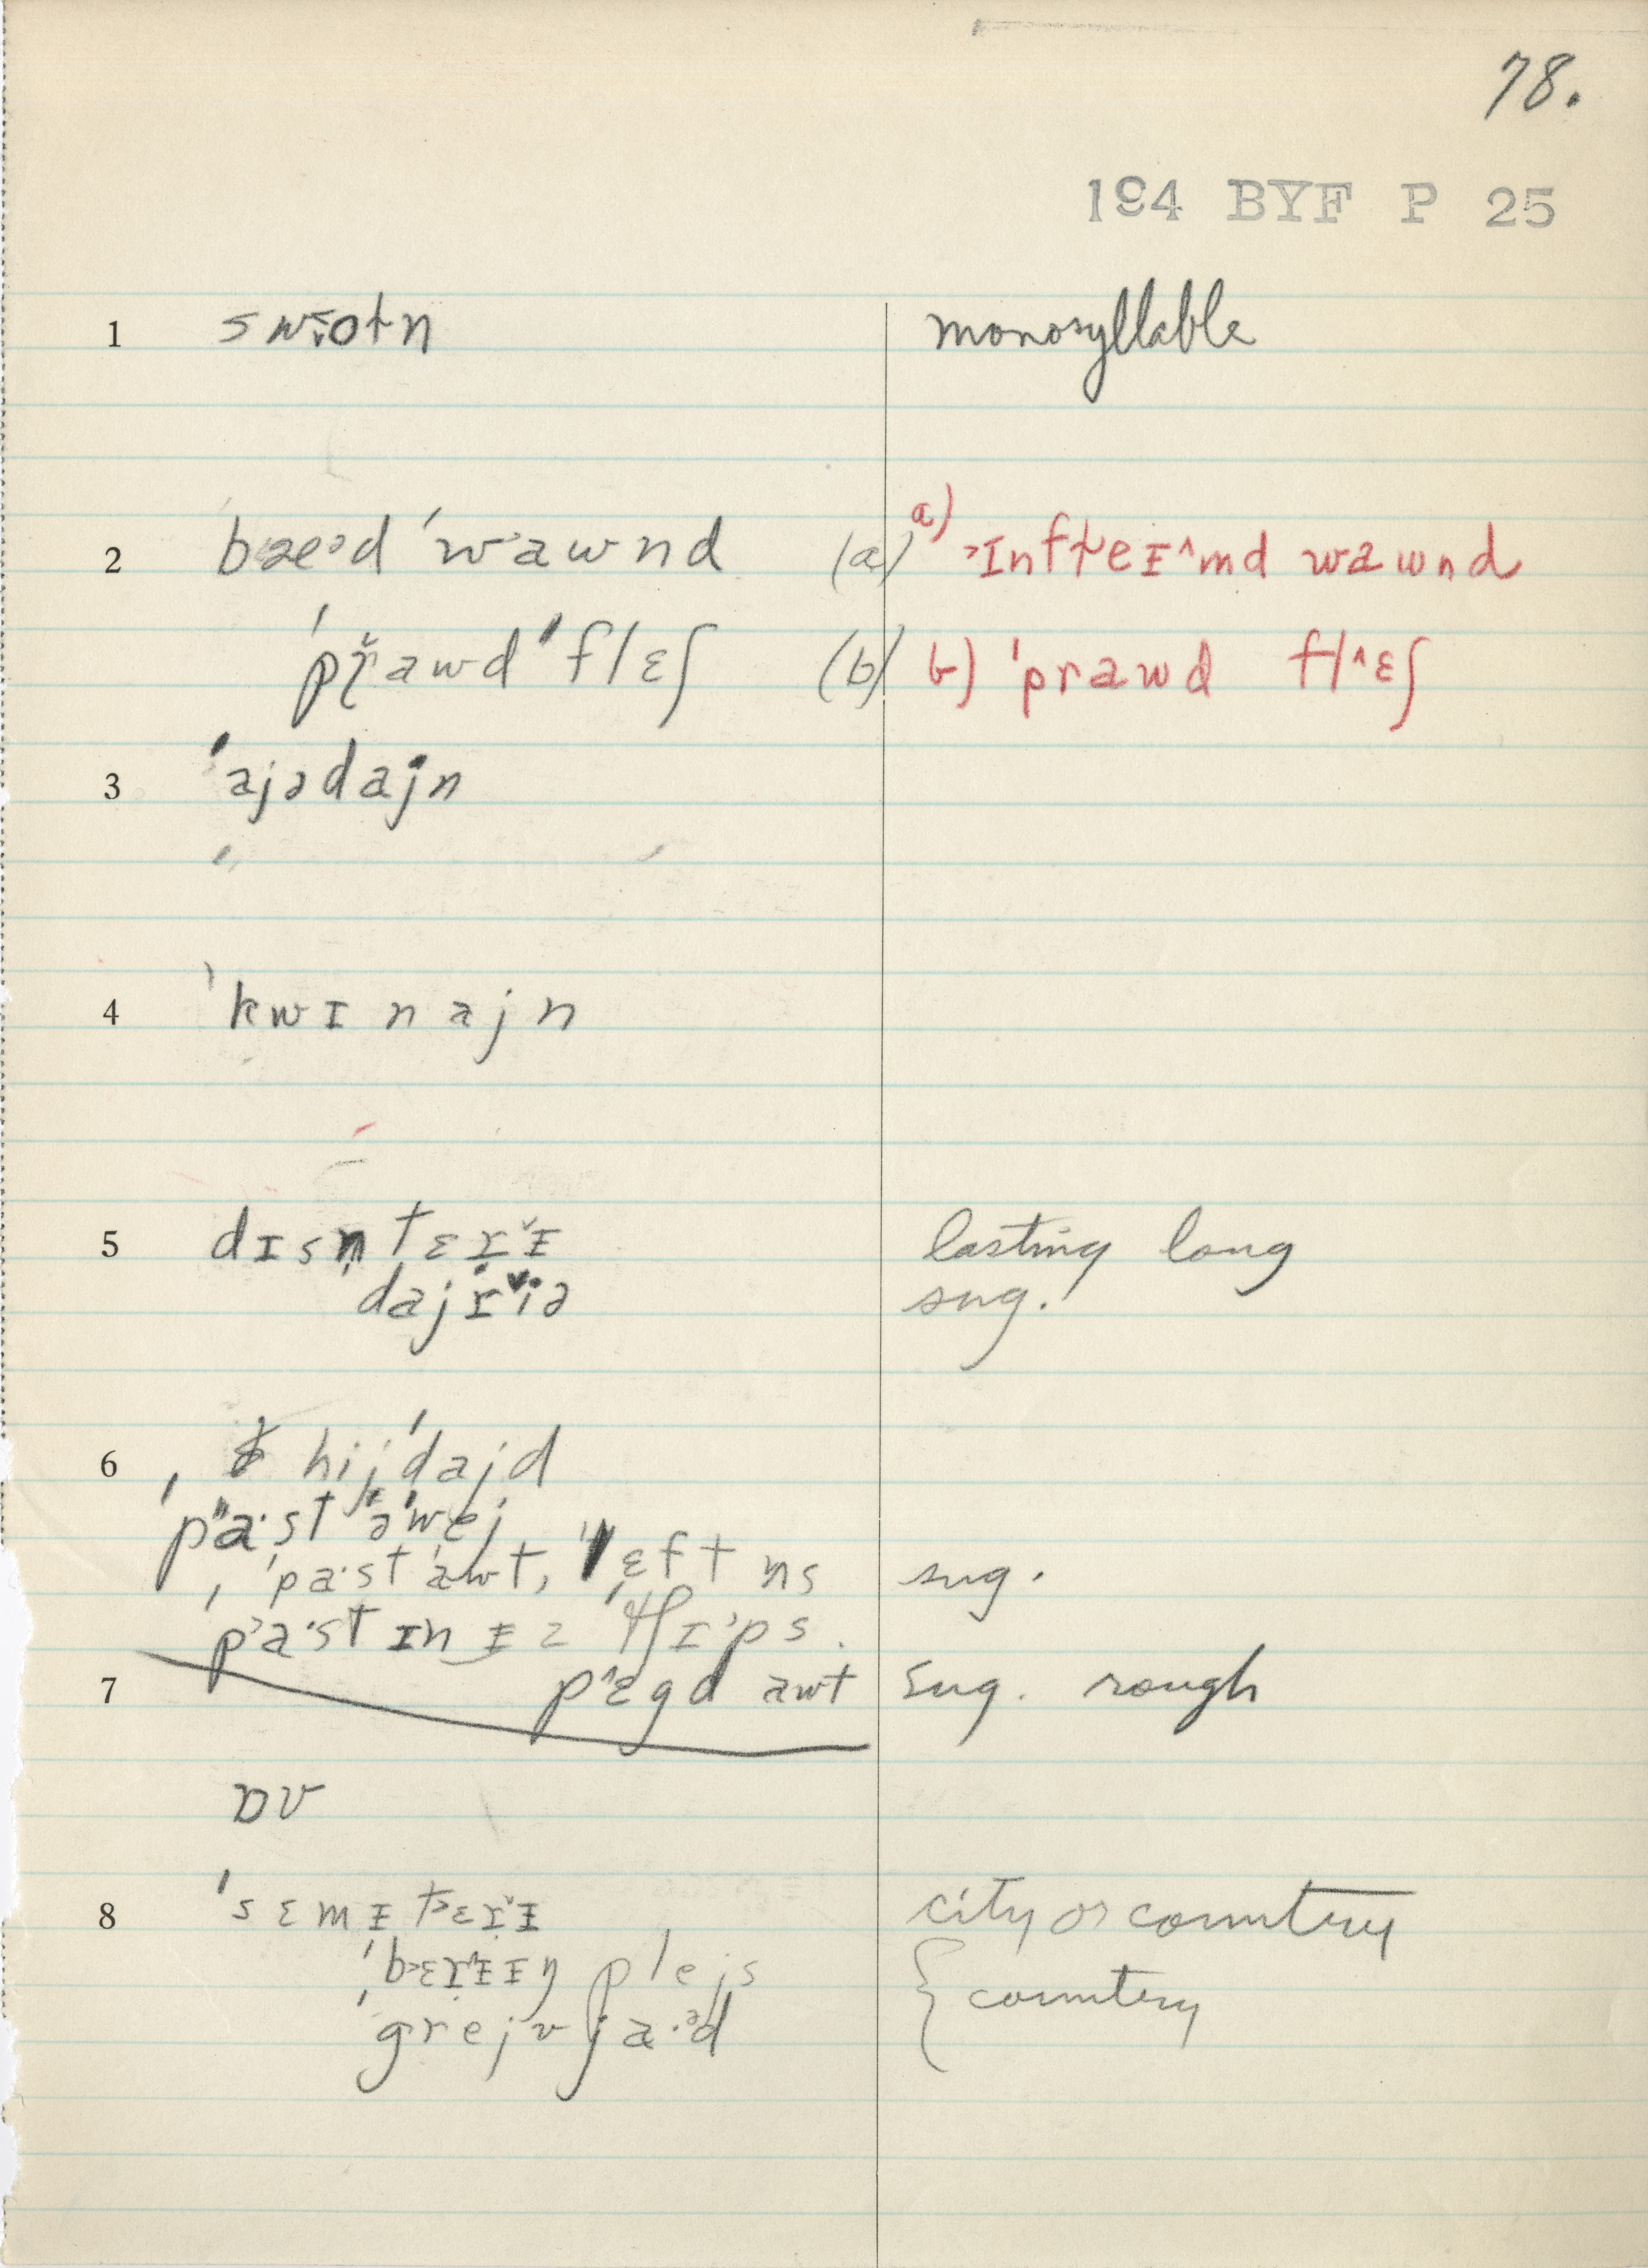 78.
194 BYF P 25
1 monosyllable
2 bæᵊd ˈwawnd (a) a) ɪnfleᵻ^md wawnd
ˈpř̨awd ˈflɛʃ (b) b) ˈprawd fl^ɛʃ
3 ˈajədajn
4 ˈkwɪnajn
5 dɪsn̩tɛrᵛᵻ lasting long
dajrᵛiə sug.
6 hijˈdajd
pa·st əˈwej
ˈpa·st awt, ˈlɛft ns sug.
pa·st ɪn ᵻz tʃɪps.
7 p^ɛgd awt sug. rough
ɒv
8 ˈsɛmᵻtɛrᵛᵻ city or country
ˈbɛrᵻɪŋ plejs { country
ˈgrejvja·ᵊd